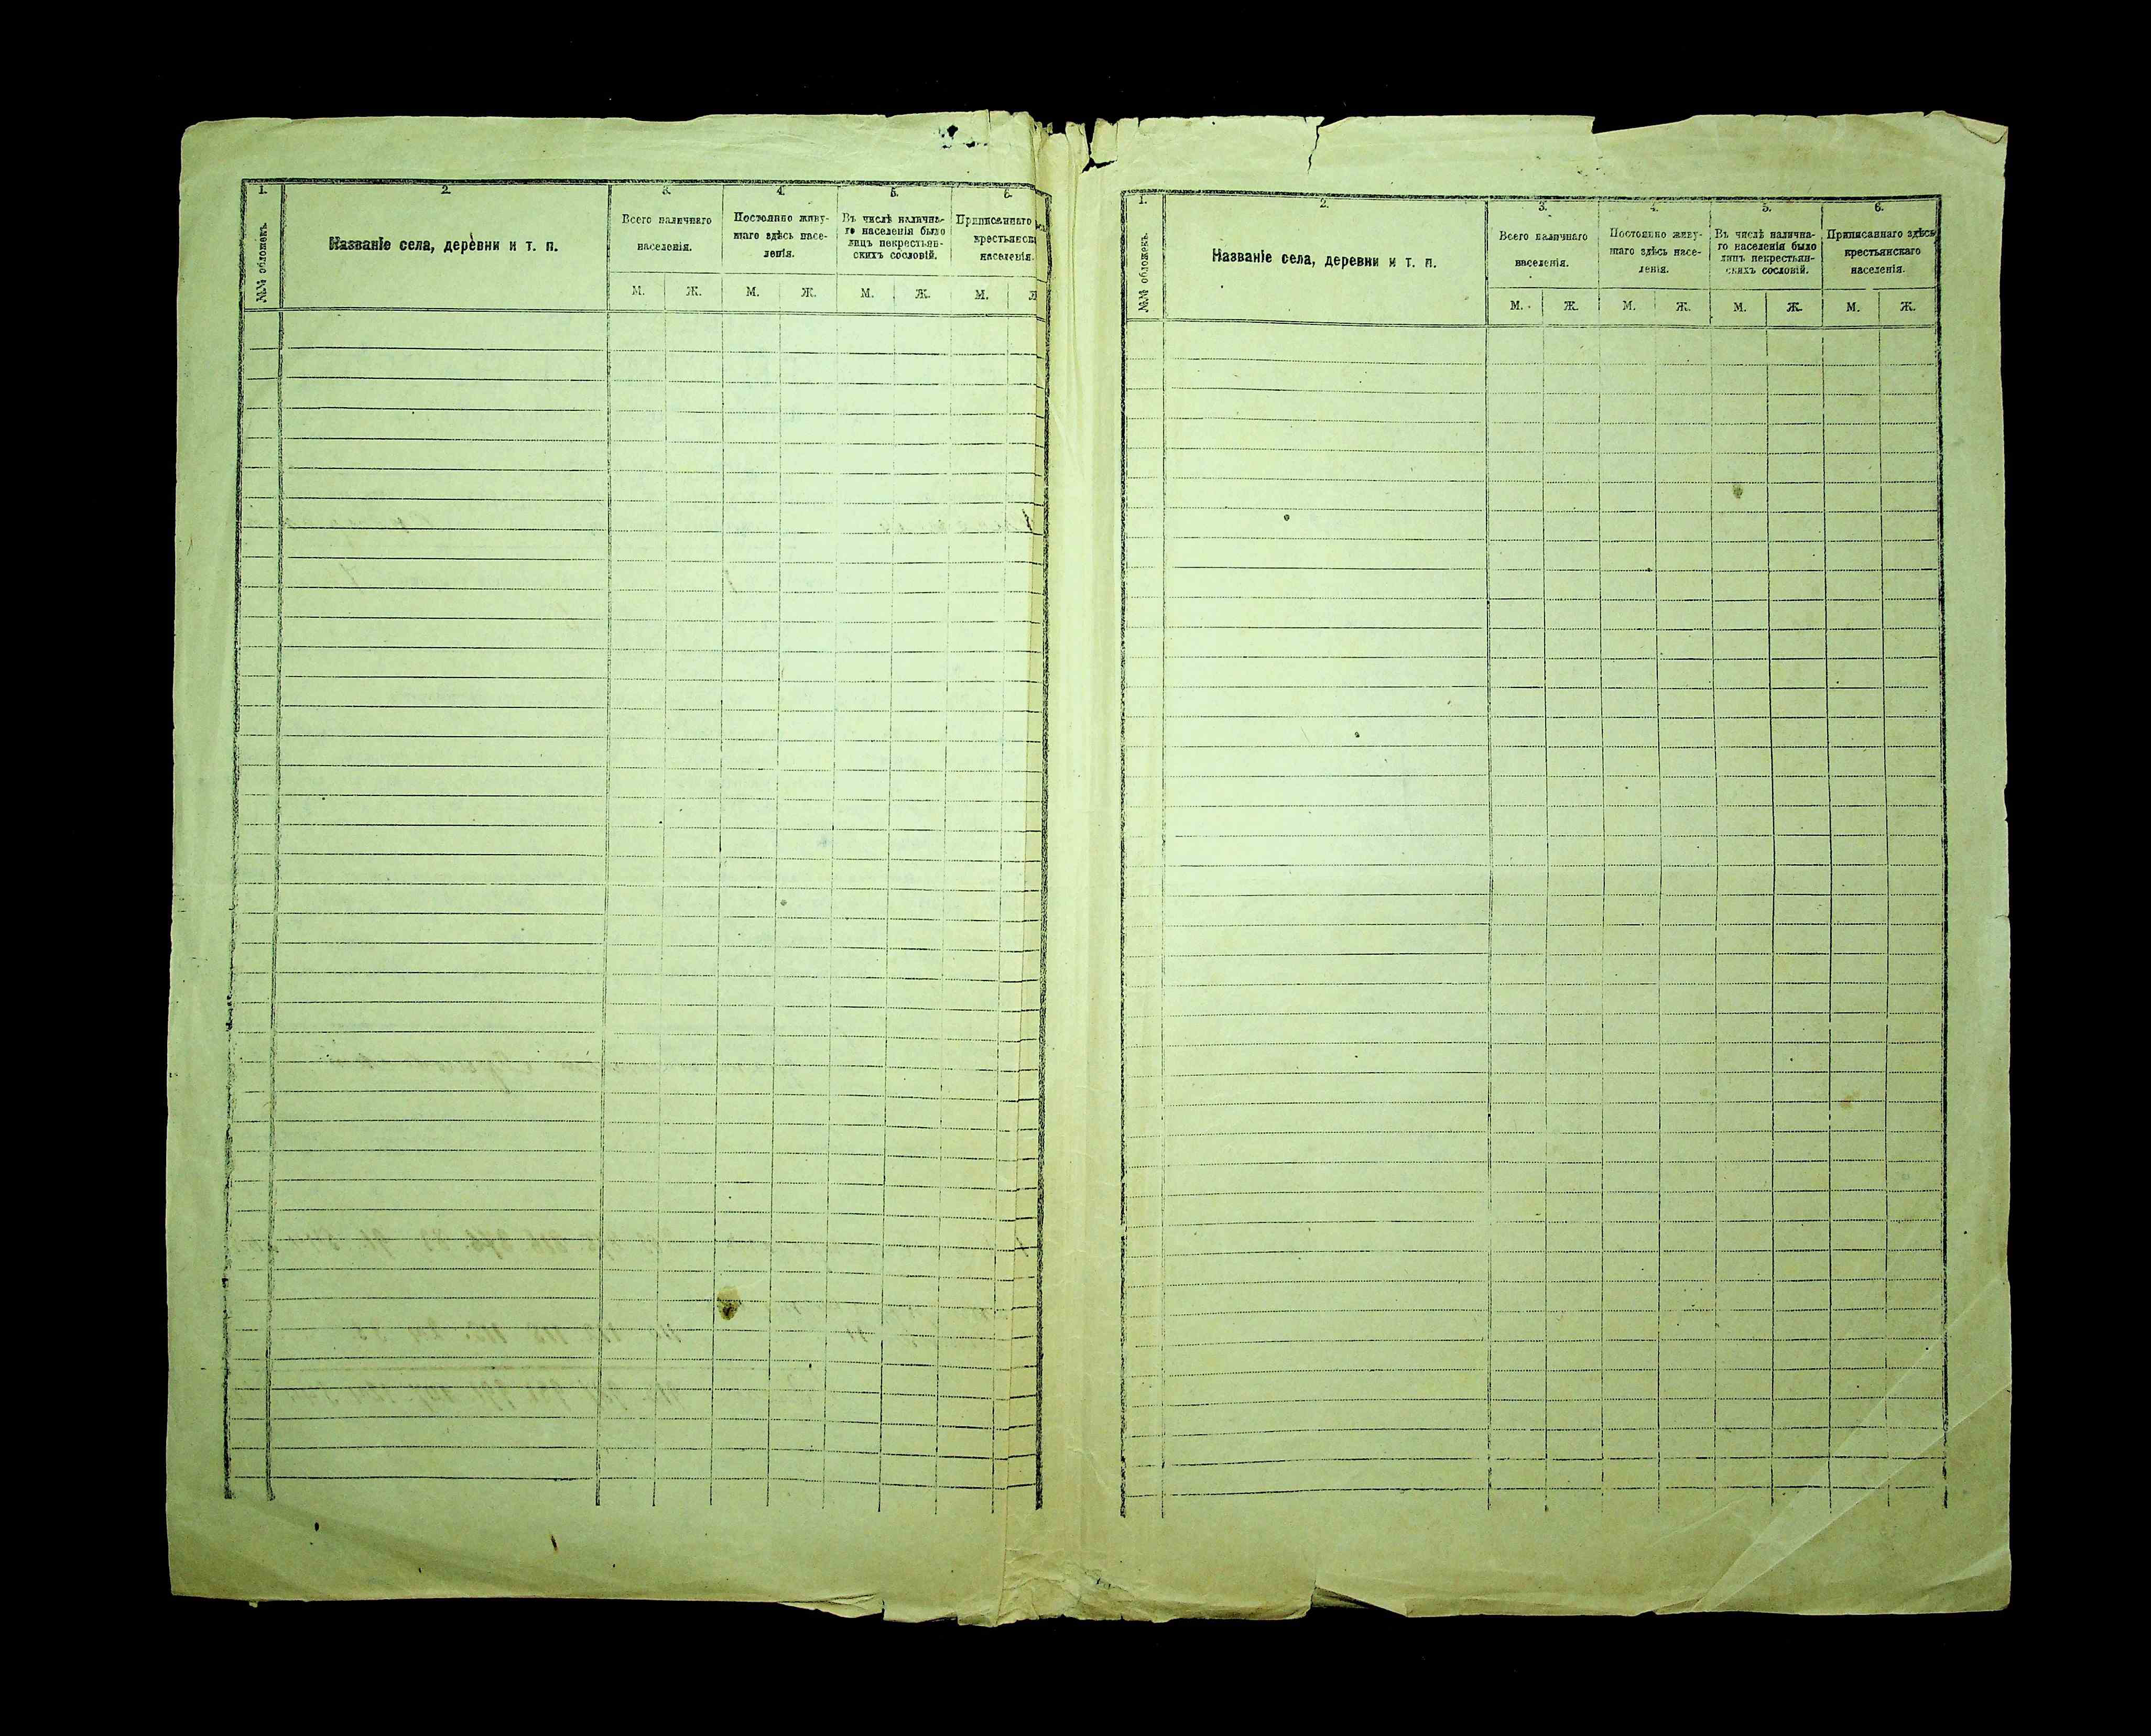 1. 2. 3. 4. 5. 6.
№№ обложекъ.
Названіе села, деревни и т. п.
Всего наличнаго
населенія.
Постоянно живу-
щаго здѣсь насе-
ленія.
Въ числѣ налична-
го населенія было
лицъ некрестьян-
скихъ сословій.
Приписаннаго
крестьянск
населенія.
М. Ж. М. Ж. М. Ж. М. Ж
1. 2. 3. 4. 5. 6.
№№ обложекъ.
Названіе села, деревни и т. п.
Всего наличнаго
населенія.
Постоянно живу-
щаго здѣсь насе-
ленія.
Въ числѣ налична-
го населенія было
лицъ некрестьян-
скихъ сословій.
Приписаннаго здѣсь
крестьянскаго
населенія.
М. Ж. М. Ж. М. Ж. М. Ж.